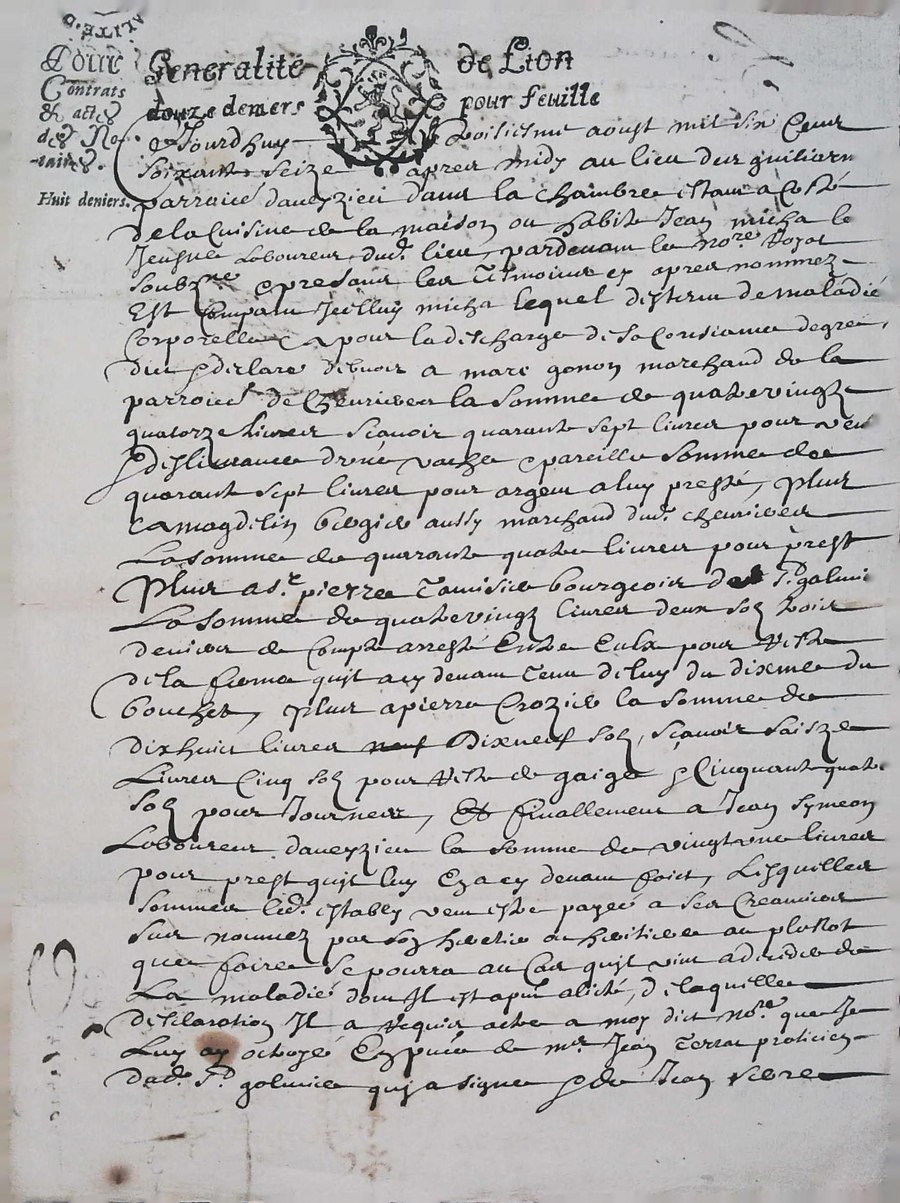 ALITE D
Pour Generalité de Lion
Contrats & actes des No-taires.
douze deniers pour feuille
Huit deniers.
Aujourdhuy troisiesme aoust mil six cens
soixante seize apres midy au lieu des
parroice daveyzieu dans la chambre estant a costé
de la cuisine de la maison ou habite Jean micha le
Jeusne laboureur dud. lieu, pardevant le nore Royal
soubzne & presans les tesmoings cy apres nommez
Est comparu Jcelluy micha lequel destenu de maladie
corporelle & pour la descharge de sa consiance degré
dict & declaré debvoir a marc gonon marchand de la
parroice de Chevrieres la somme de quatrevingtz
quatorze livres scavoir quarante sept livres pour
& deslivrance dune vache & pareille somme de
quarante sept livres pour argent a luy presté, plus
a magdelin aussy marchand dud. chevrieres
La somme de quarante quatre livres pour prest
Plus a sr. pierre Tamisier bourgeois de St. galmi
La somme de quatrevingtz livres deux solz trois
deniers de compte arresté entre eulx pour reste
de la ferme quyl a cy devant tenu de luy du dixme du
bouchet, plus a pierre Crozier la somme de
dixhuit livres neuf Dixneuf solz, scavoir saize
Livres Cinq solz pour reste de gaige & Cinquante quatre
solz pour Journees, Et finallement a Jean Symeon
Laboureur daveyzieu la somme de vingt une livres
pour prest quyl luy en a cy devant faict, Lesquelles
sommes led. estably veut estre payee a ses Creanciers
sus nommez par son heritier ou heritiere au plustot
que faire se pourra au Cas quyl vint a deceder de
La maladie dont Jl est a pnt alicté, de laquelle
desclaration Jl a requis acte a moy dict nore. que Je
Luy ay octroyé En pnce de mre. Jean Terrat praticien
dud. St. galmier quy a signé & de Jean